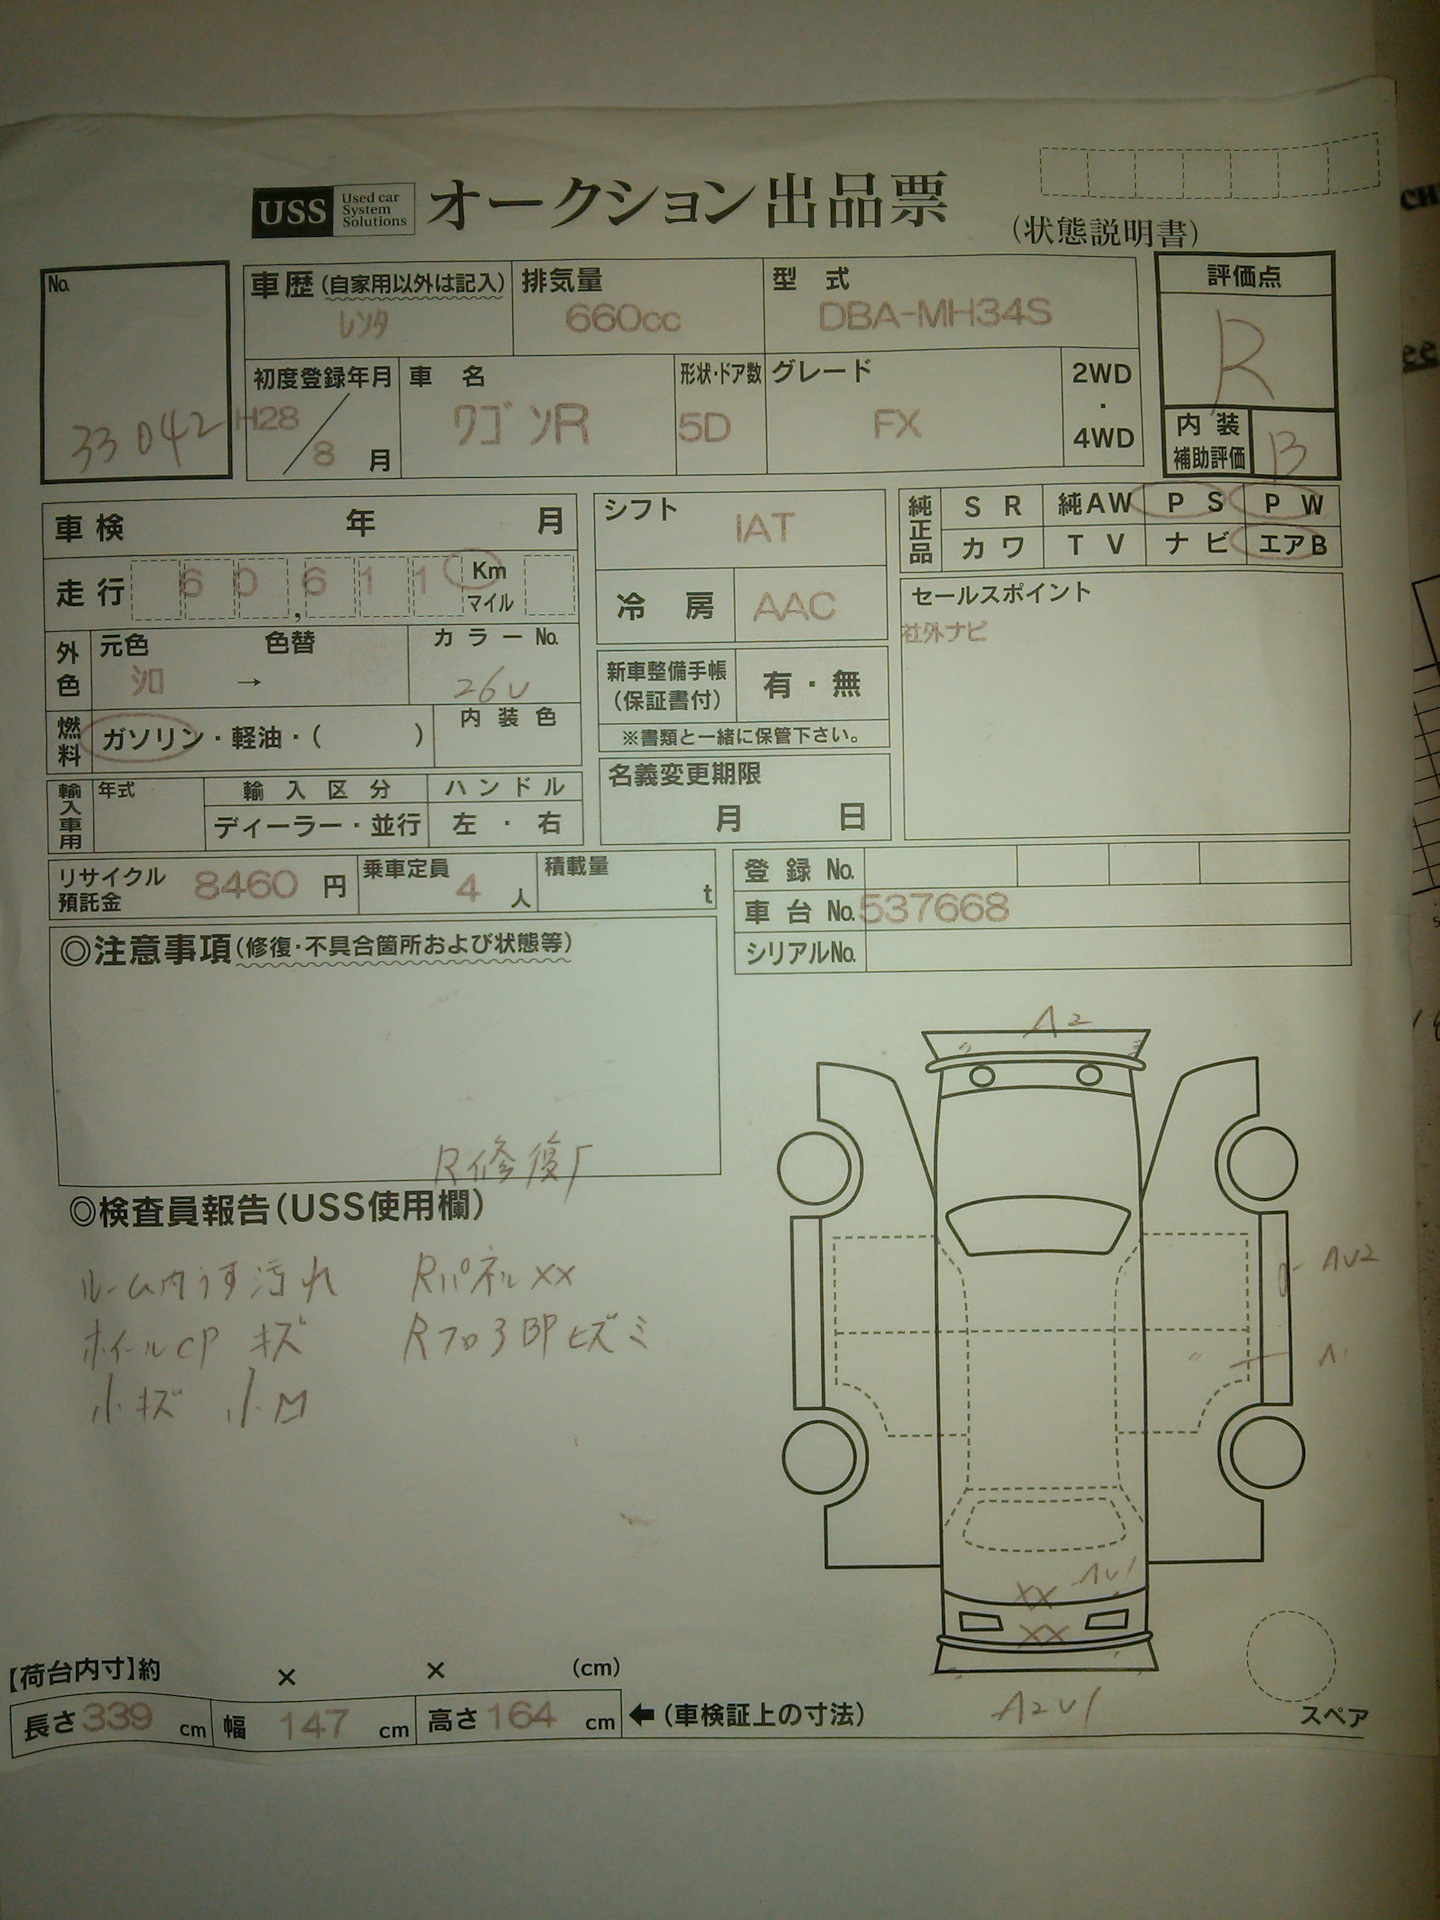 USS Used car System Solutions オークション出品票
(状態説明書)
No. 33042
車歴(自家用以外は記入) レンタ
排気量 660cc
型式 DBA-MH34S
評価点 R
初度登録年月 H28/8月
車名 ワゴンR
形状・ドア数 5D
グレード FX
2WD・4WD
内装補助評価 B
車検 年 月
シフト IAT
純正品 SR 純AW PS PW
カワ TV ナビ エアB
走行 60,611 Km マイル
冷房 AAC
セールスポイント
社外ナビ
外色 元色 シロ → 色替
カラーNo. 26U
新車整備手帳(保証書付) 有・無
※書類と一緒に保管下さい。
燃料 ガソリン・軽油・( )
内装色
名義変更期限 月 日
輸入車用 年式 輸入区分 ハンドル
ディーラー・並行 左・右
リサイクル預託金 8460円
乗車定員 4人
積載量 t
登録No.
車台No. 537668
シリアルNo.
◎注意事項(修復・不具合箇所および状態等)
R修復
◎検査員報告(USS使用欄)
ルーム内うす汚れ Rパネルxx
ホイールCP キズ Rフロ3BPヒズミ
小キズ 小凹
A2
AU2
A1
XX AU1
XX
A2U1
【荷台内寸】約 × × (cm)
長さ339cm 幅147cm 高さ164cm ←(車検証上の寸法)
スペア